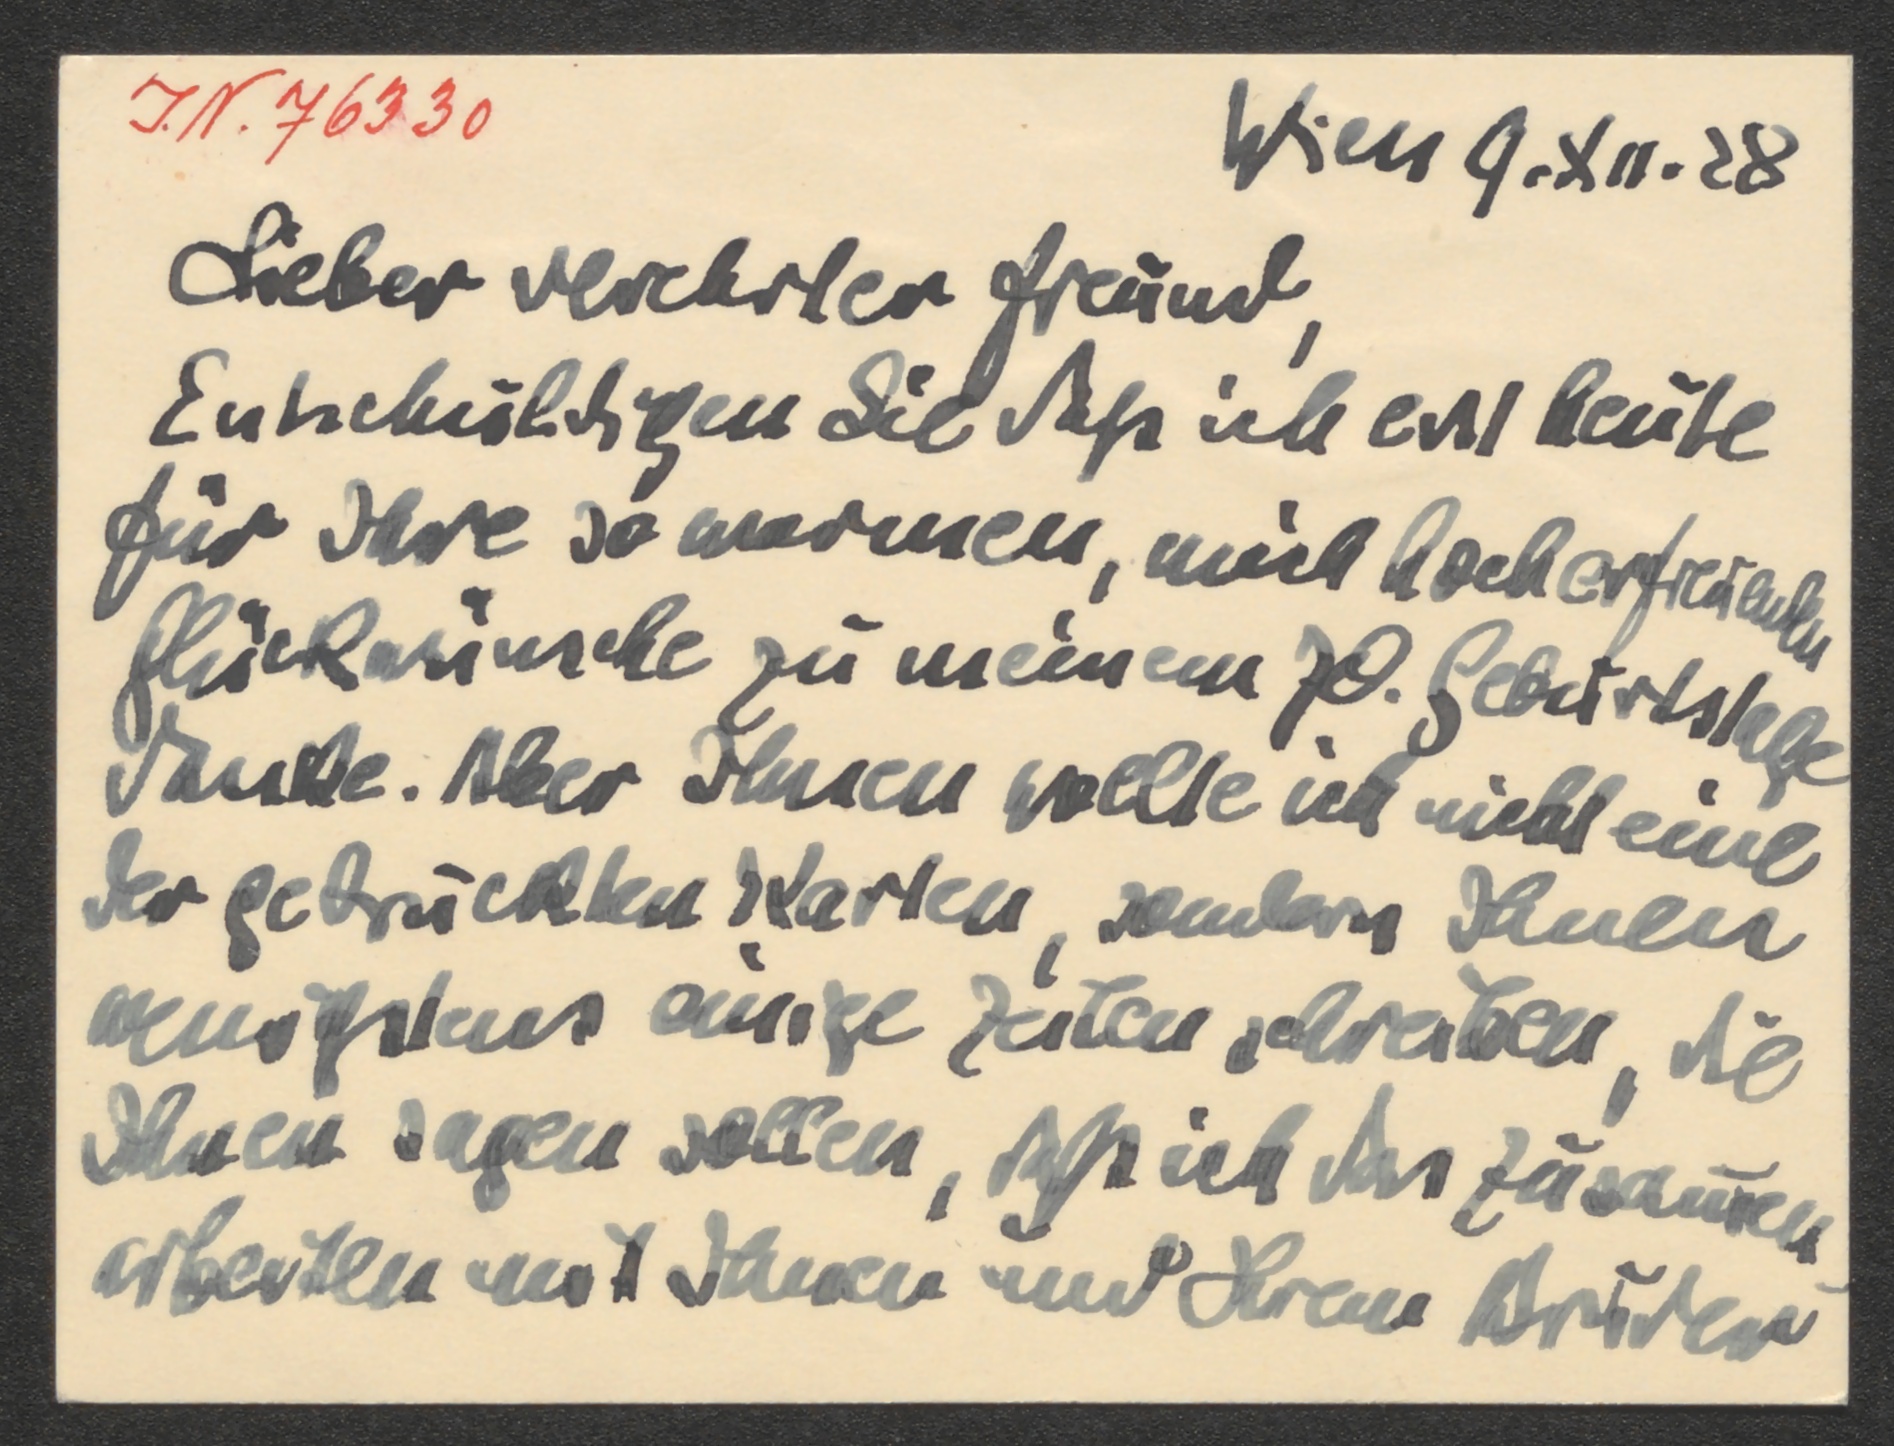 I.N. 76330
Wien 9.XII.28
Lieber verehrter Freund,
Entschuldigen Sie daß ich erst heute
für Ihre so warmen, mich hocherfreuenden
Glückwünsche zu meinem 70. Geburtstage
danke. Aber Ihnen wollte ich nicht eine
der gedruckten Karten, sondern Ihnen
wenigstens einige Zeilen schreiben, die
Ihnen sagen sollen, daß ich das Zusam̅en
arbeiten mit Ihnen und Ihrem Bruder